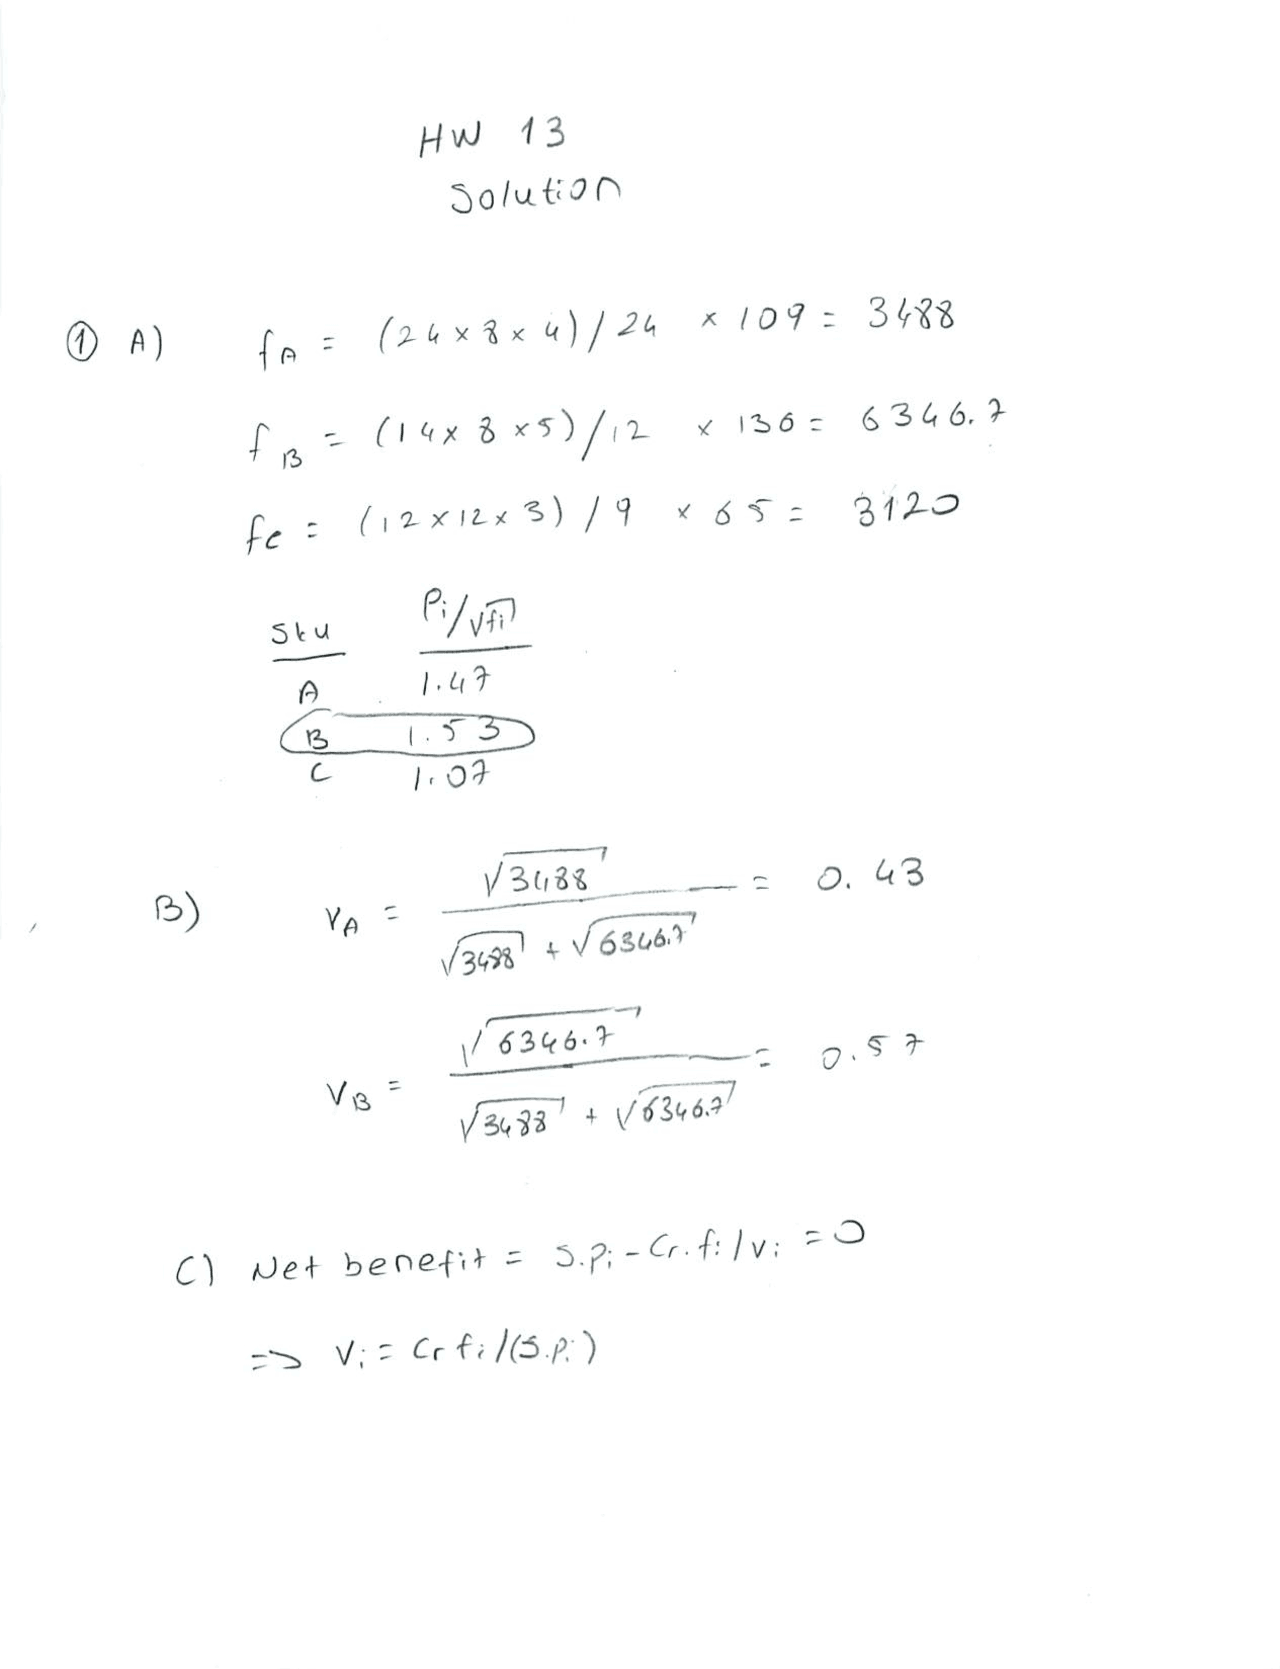 HW 13
Solution
① A) fA = (24 × 8 × 4) / 24 × 109 = 3488
fB = (14 × 8 × 5) / 12 × 136 = 6346.7
fc = (12 × 12 × 3) / 9 × 65 = 3120
Sku Pi/√fi
A 1.47
B 1.53
C 1.07
B) VA = √3488 / (√3488 + √6346.7) = 0.43
VB = √6346.7 / (√3488 + √6346.7) = 0.57
C) Net benefit = S.Pi - Cr.fi/Vi = 0
=> Vi = Cr fi/(S.Pi)